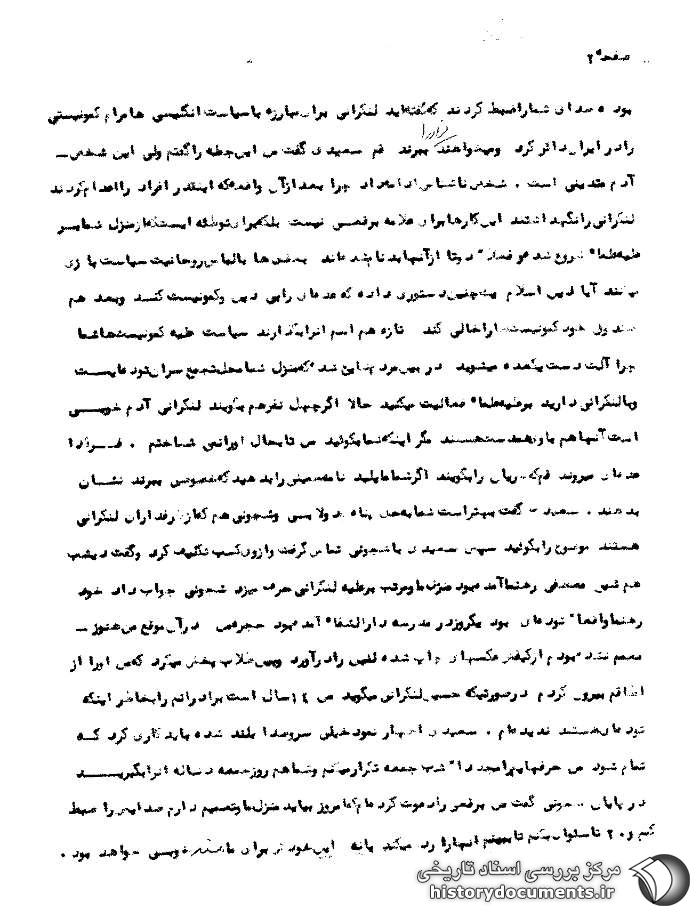 صفحه ۲
بود ه صدای شما را ضبط کردند که گفته‌اید لنکرانی برای مبارزه با سیاست انگلیسی ها مرام کمونیستی
را در ایران دائر کرد و میخواهند ببرند قم سعیدی گفت من این جمله را گفتم ولی این شخص ـ
آدم متدینی است . شخص ناشناس ادامه داد چرا بعد از آن واقعه که اینقدر افراد را اعدام کردند
لنکرانی را نگهداشتند این کارها برای علامه برقعی نیست بلکه برای توطئه ایست که از منزل شما بسر
علیه علما شروع شده و فعلا" دوتا از آنها بدنام شده‌اند بعضی ها با لباس روحانیت سیاست بازی
میکنند آیا دین اسلام چنین دستوری داده که عده‌ای را بی دین و کمونیست کنند و بعد هم
خود کمونیست را خالی کند تازه هم اسم آنرا بگذارند سیاست علیه کمونیست‌ها شما
چرا آلت دست یکعده میشوید در بین مردم شایع شده که منزل شما محل تجمع سران توده‌ایست
و با لنکرانی دارید بر علیه علماء فعالیت میکنید حالا اگر چهل نفر هم بگویند لنکرانی آدم خوبیی
است آنها هم با او همدست هستند مگر اینکه شما بگوئید من تا بحال او را نمی شناختم . فــردا
عده‌ای میروند قم که را بگویند اگر شما مایلید نامه معینی را بدهید که خصوصی ببرند نشان
بدهند . سعیدی گفت بهتر است شما به و شجونی هم که از طرفداران لنکرانی
هستند موضوع را بگوئید سپس سعیدی با شجونی تماس گرفت و از وی کسب تکلیف کرد و گفت دیشب
هم رهنما آمده بود منزل ما و مرتب بر علیه لنکرانی حرف میزد شجونی جواب داد خود
رهنما واقعا" توده‌ای بود یکروز در مدرسه دارالشفاء آمده بود حجره من در آن موقع من هنوز ـ
معمم نشده بودم از کیفش عکسهای چاپ شده لنین را در آورد و بین طلاب پخش میکرد که من او را از
اطاقم بیرون کردم در صورتیکه حسین لنکرانی میگوید من ۱۴ سال است برادرانم را بخاطر اینکه
توده‌ای هستند ندیده‌ام . سعیدی اظهار نمود خیلی سر و صدا بلند شده باید کاری کرد کــه
تمام شود من حرفهایم را مجددا" شب جمعه تکرار میکنم و شما هم روز جمعه دنباله آنرا بگیریــد
در پایان شجونی گفت من برقعی را دعوت کرده‌ام که امروز بیاید منزل ما و تصمیم دارم صدایش را ضبط
کنم و ۲۰ تا سئوال بکنم تا ببینم آنها را رد میکند یا نه این خود برای ما خوبی خواهد بود .
مرکز بررسی اسناد تاریخی
historydocuments.ir